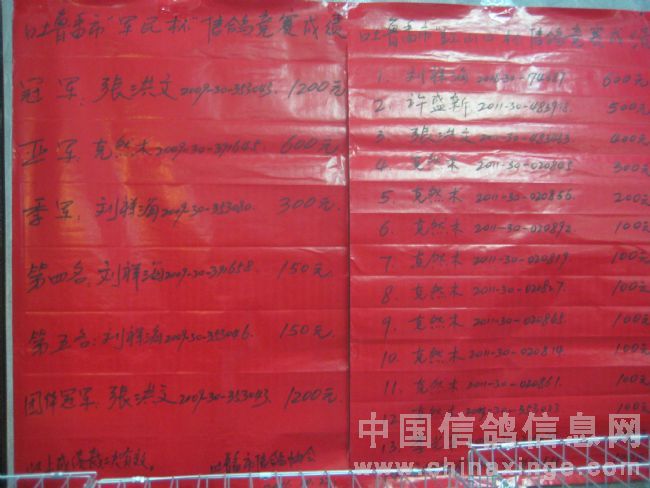 吐鲁番市"军民杯"信鸽竞赛成绩
冠军 张洪文 2009-30-353043 1200元
亚军 克然木 2009-30-391645 600元
季军 刘祥海 2009-30-353030 300元
第四名 刘祥海 2009-30-391658 150元
第五名 刘祥海 2009-30-353046 150元
团体冠军 张洪文 2009-30-353043 1200元
以上成绩 有效
吐鲁番市信鸽协会
吐鲁番市 杯 信鸽竞赛成绩
1. 刘祥海 600元
2. 许盛新 2011-30-483918 500元
3. 张洪文 400元
4. 克然木 2011-30-020805 300元
5. 克然木 2011-30-020856 200元
6. 克然木 2011-30-020892 100元
7. 克然木 2011-30-020819 100元
8. 克然木 100元
9. 克然木 2011-30-020865 100元
10. 克然木 2011-30-020814 100元
11. 克然木 2011-30-020861 100元
12 克然木 100元
13
中国信鸽信息网
www.chinaxinge.com